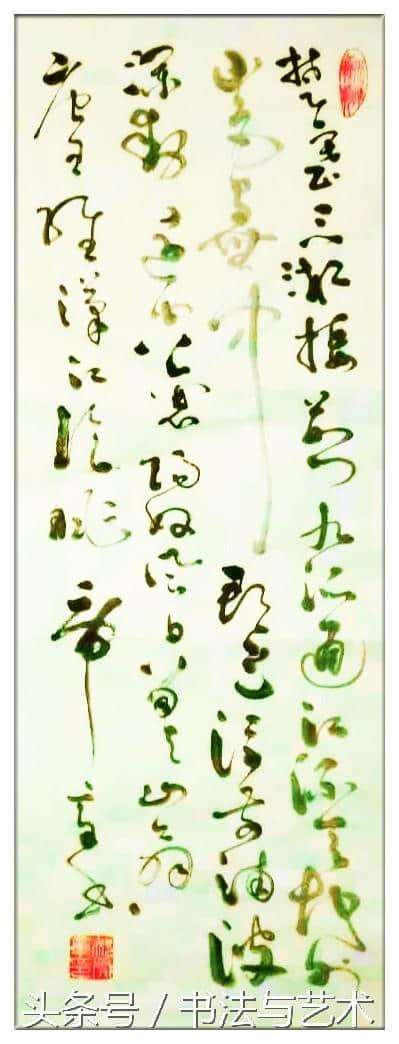 楚塞三湘接荆门九派通江流天地外
山色有無中郡邑浮前浦波
澜動遠空襄陽好風日留醉与山翁
唐王維漢江臨眺
头条号 / 书法与艺术